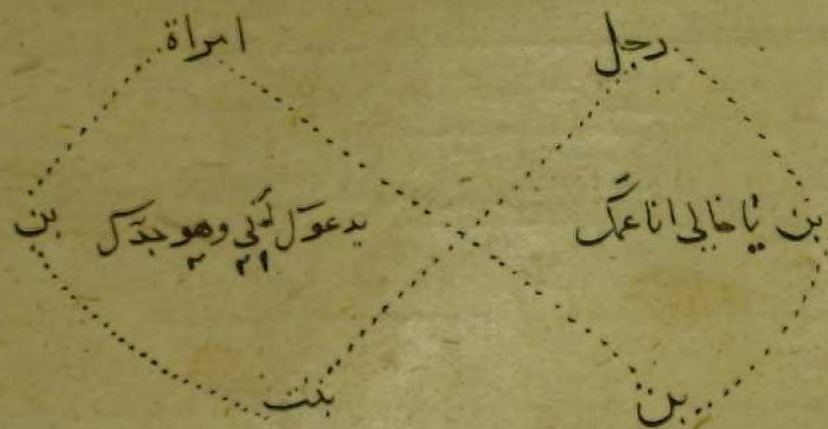 رجل امراة
بن يا خالى انا عمك يدعوك أبى وهو جدك بن
بن بنت